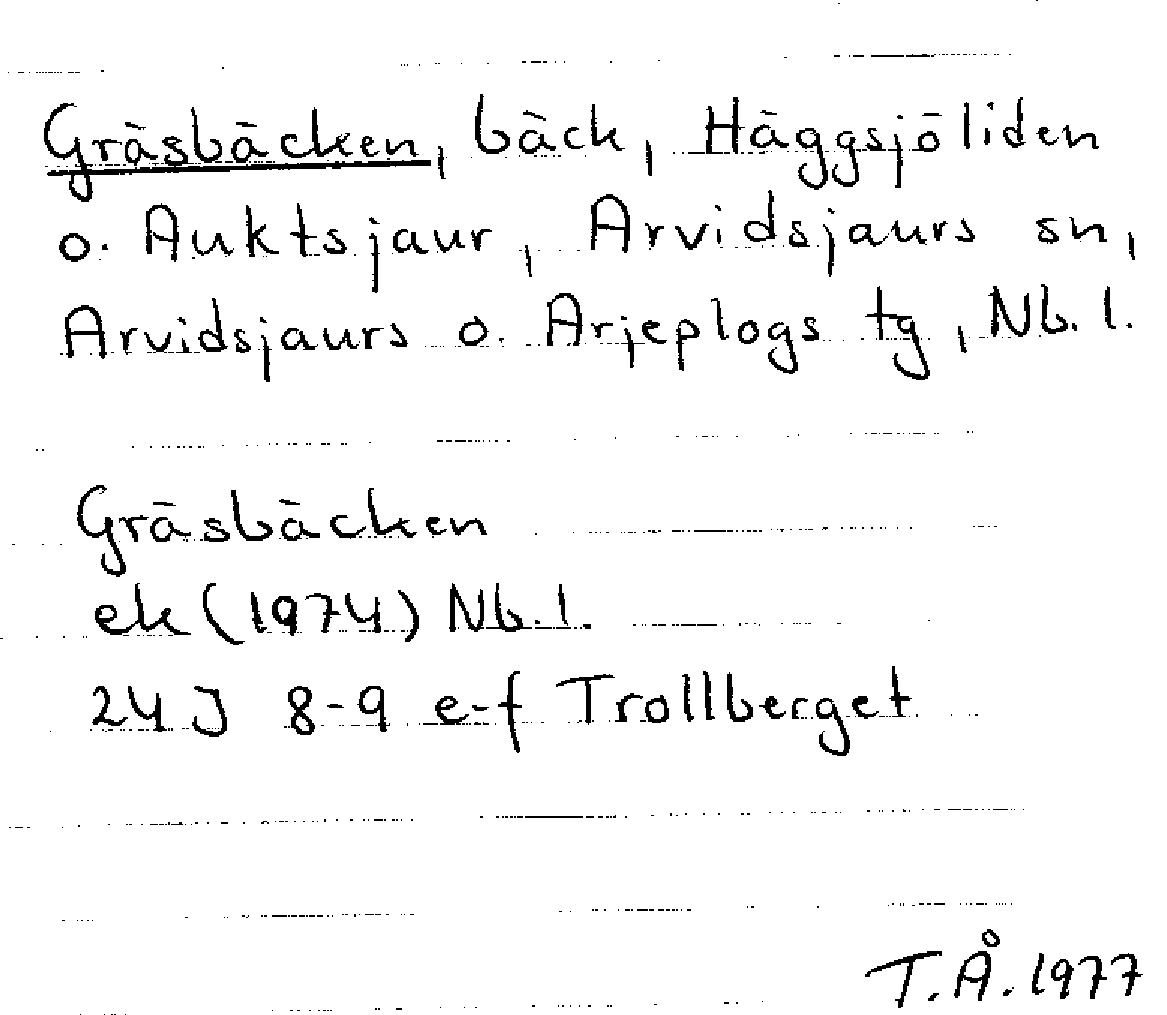 Gräsbäcken, bäck, Häggsjöliden
o. Auktsjaur, Arvidsjaurs sn,
Arvidsjaurs o. Arjeplogs tg, Nb. l.
Gräsbäcken
ek (1974) Nb. l.
24J 8-9 e-f Trollberget
T.Å. 1977